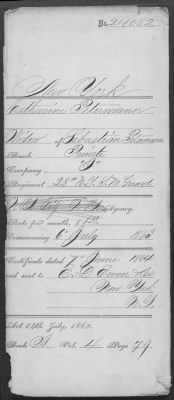 No. 24082
New York
Catharine Petermann
Widow of Sebastian Petermann
Rank Private
Company "I"
Regiment 28" N.Y.S.N. Guard
Agency.
Rate per month, 8
Commencing 6" July 1863
Certificate dated 7" June 1864
and sent to E. D. Owen
New York
N.Y.
Act 14th July, 1862.
Book A Vol. 4 Page 79.